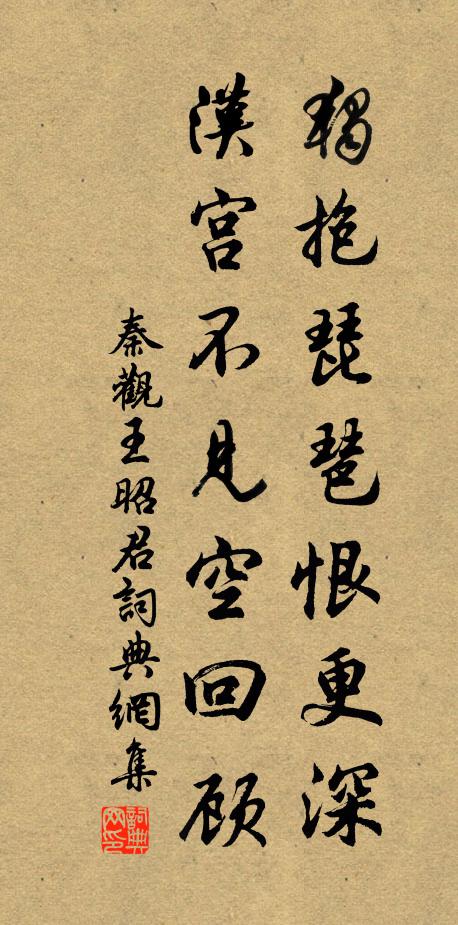 獨抱琵琶恨更深
漢宮不見空回顧
秦觀王昭君詞典網集
詞典網印